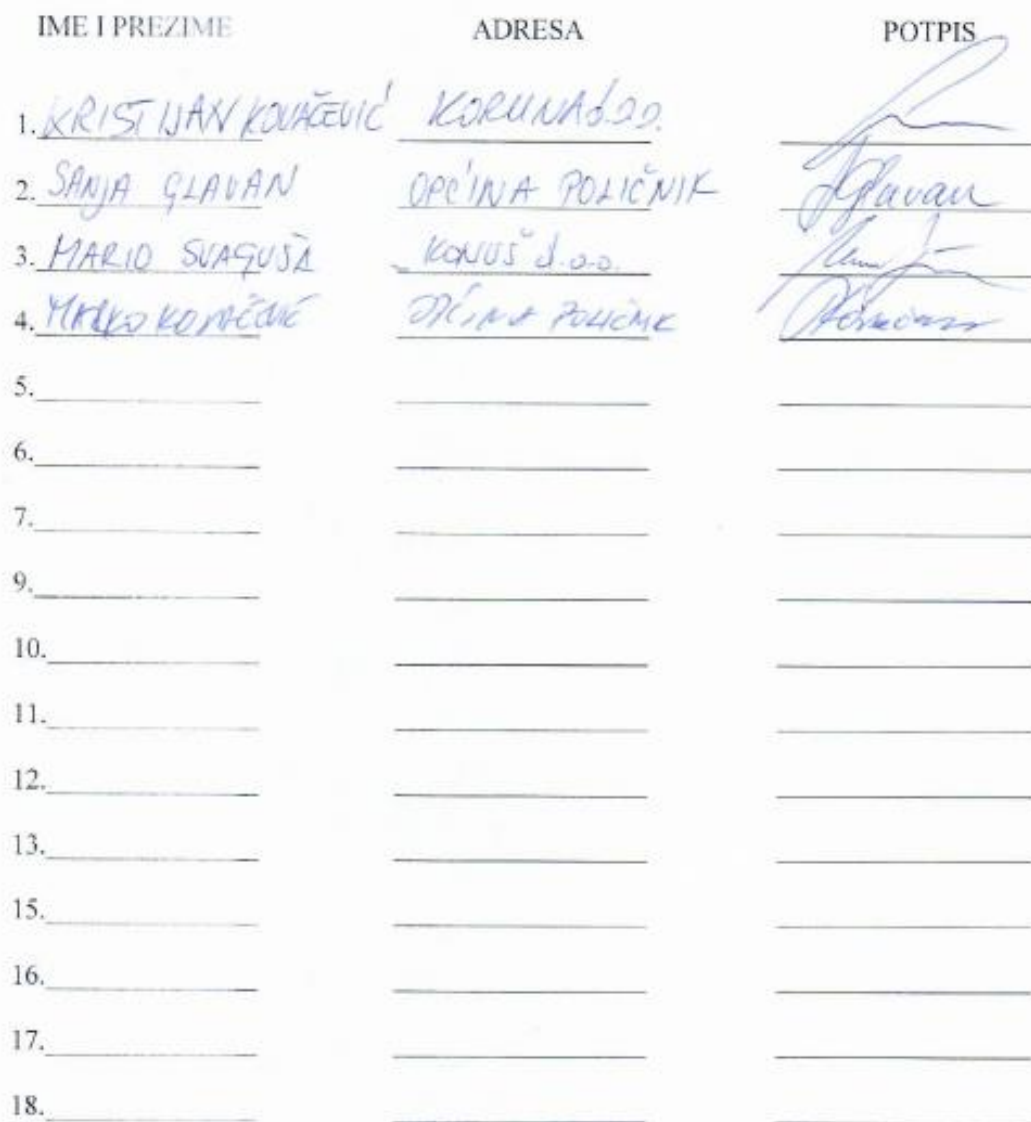 IME I PREZIME ADRESA POTPIS
1. KRISTIJAN KOVAČEVIĆ KORUNA d.o.o.
2. SANJA GLAVAN OPĆINA POLIČNIK Glavan
3. MARIO SVAGUŠA KONUŠ d.o.o.
4. MARKO KOVAČEVIĆ OPĆINA POLIČNIK
5.
6.
7.
9.
10.
11.
12.
13.
15.
16.
17.
18.